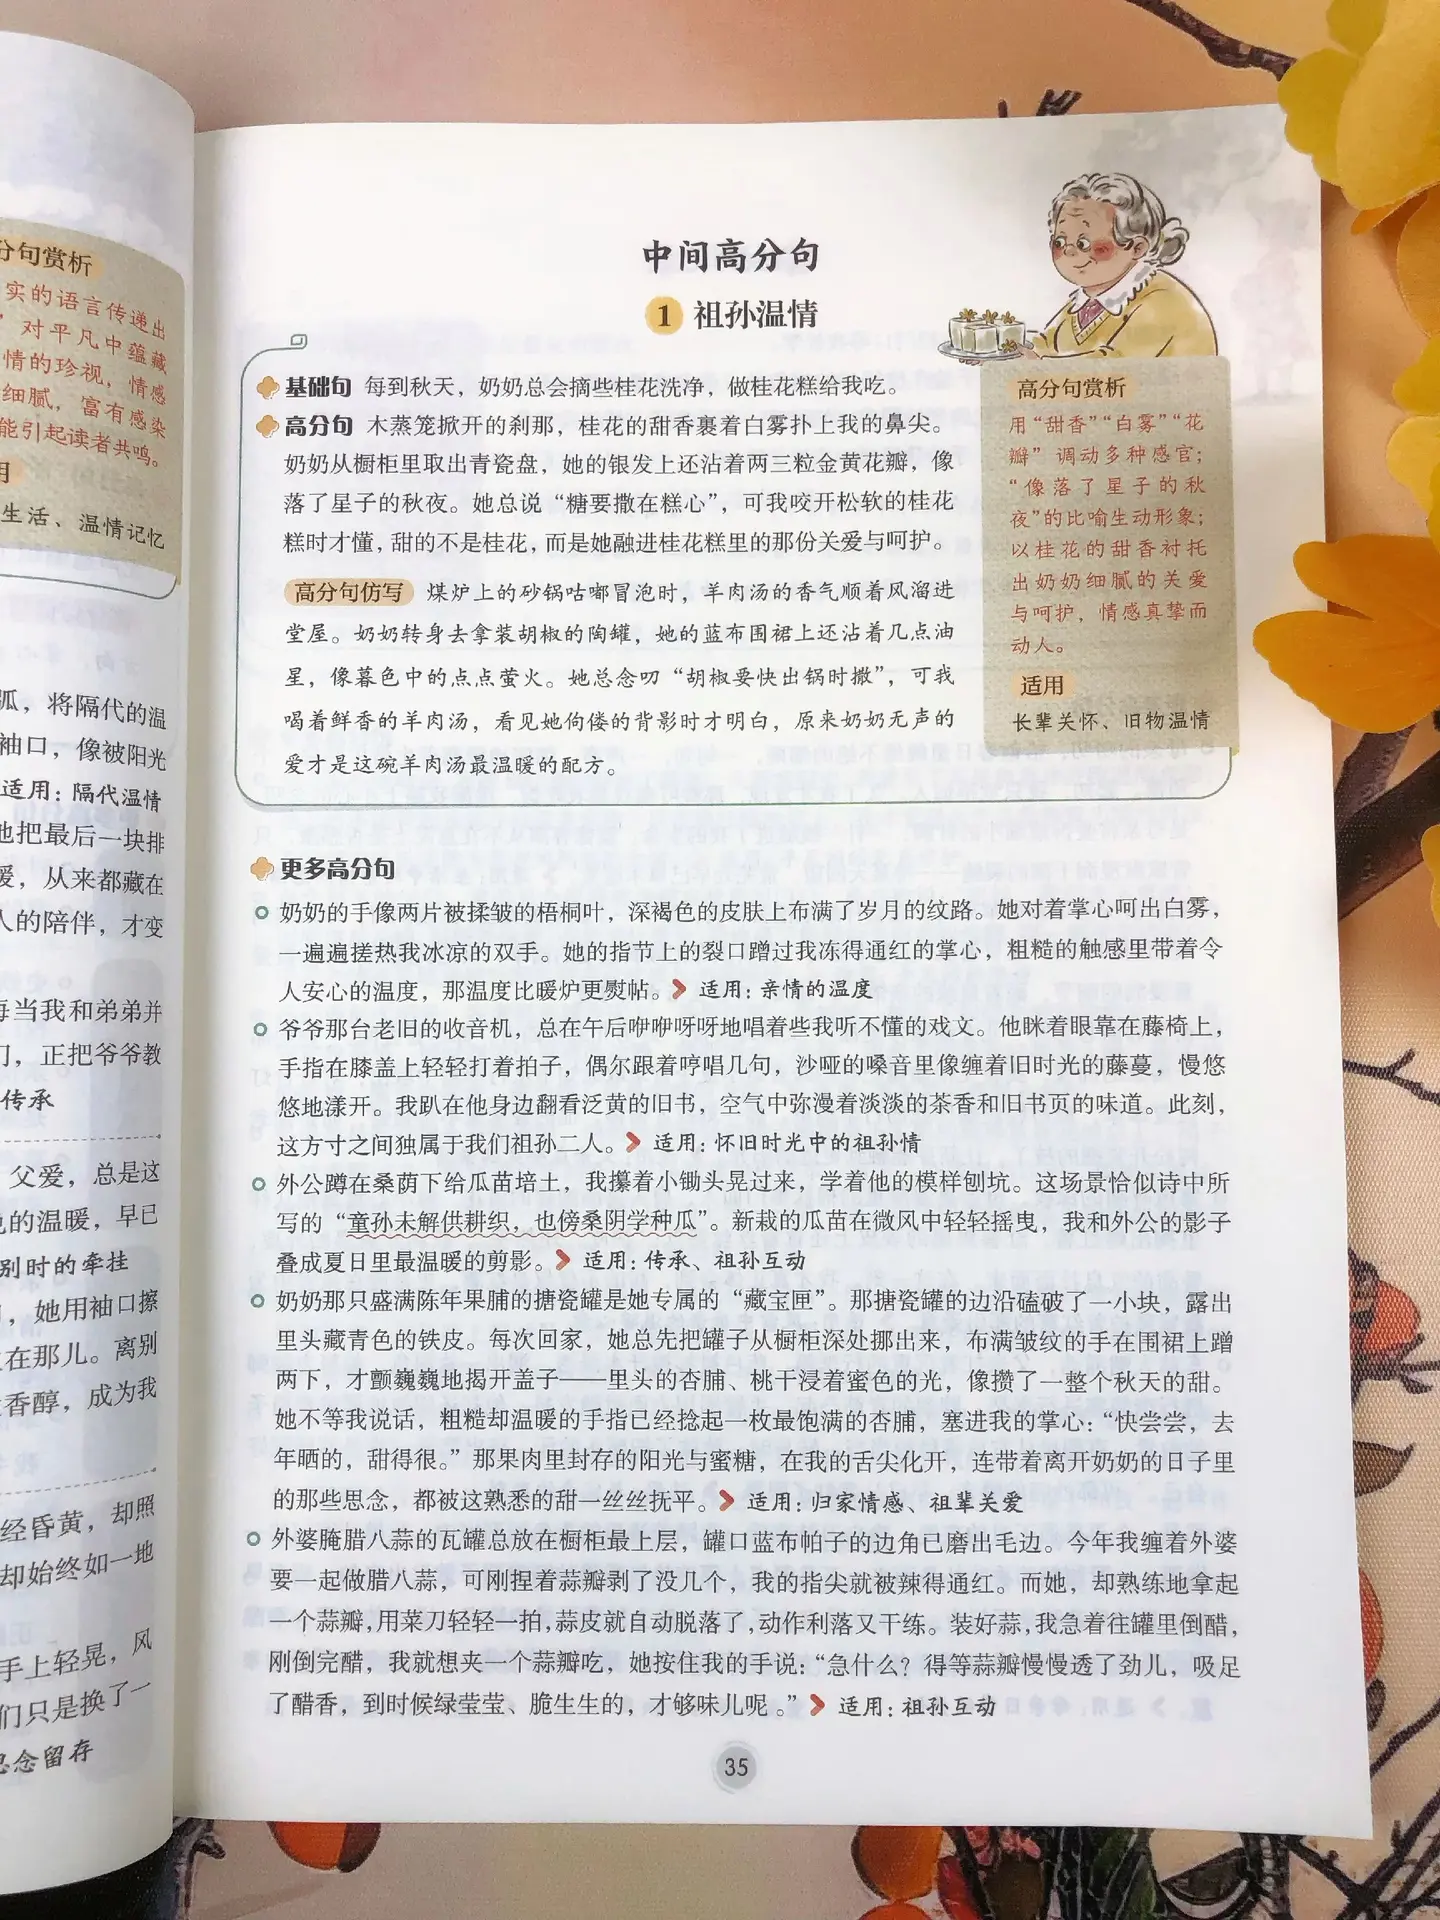 分句赏析
实的语言传递出
”对平凡中蕴藏
情的珍视，情感
细腻，富有感染
能引起读者共鸣。
用
生活、温情记忆
弧，将隔代的温
袖口，像被阳光
适用：隔代温情
他把最后一块排
暖，从来都藏在
人的陪伴，才变
每当我和弟弟并
门，正把爷爷教
传承
父爱，总是这
色的温暖，早已
别时的牵挂
她用袖口擦
在那儿。离别
香醇，成为我
经昏黄，却照
却始终如一地
手上轻晃，风
们只是换了一
思念留存
中间高分句
1 祖孙温情
基础句 每到秋天，奶奶总会摘些桂花洗净，做桂花糕给我吃。
高分句 木蒸笼掀开的刹那，桂花的甜香裹着白雾扑上我的鼻尖。
奶奶从橱柜里取出青瓷盘，她的银发上还沾着两三粒金黄花瓣，像
落了星子的秋夜。她总说“糖要撒在糕心”，可我咬开松软的桂花
糕时才懂，甜的不是桂花，而是她融进桂花糕里的那份关爱与呵护。
高分句仿写 煤炉上的砂锅咕嘟冒泡时，羊肉汤的香气顺着风溜进
堂屋。奶奶转身去拿装胡椒的陶罐，她的蓝布围裙上还沾着几点油
星，像暮色中的点点萤火。她总念叨“胡椒要快出锅时撒”，可我
喝着鲜香的羊肉汤，看见她佝偻的背影时才明白，原来奶奶无声的
爱才是这碗羊肉汤最温暖的配方。
高分句赏析
用“甜香”“白雾”“花
瓣”调动多种感官；
“像落了星子的秋
夜”的比喻生动形象；
以桂花的甜香衬托
出奶奶细腻的关爱
与呵护，情感真挚而
动人。
适用
长辈关怀、旧物温情
更多高分句
奶奶的手像两片被揉皱的梧桐叶，深褐色的皮肤上布满了岁月的纹路。她对着掌心呵出白雾，
一遍遍搓热我冰凉的双手。她的指节上的裂口蹭过我冻得通红的掌心，粗糙的触感里带着令
人安心的温度，那温度比暖炉更熨帖。 适用：亲情的温度
爷爷那台老旧的收音机，总在午后咿咿呀呀地唱着些我听不懂的戏文。他眯着眼靠在藤椅上，
手指在膝盖上轻轻打着拍子，偶尔跟着哼唱几句，沙哑的嗓音里像缠着旧时光的藤蔓，慢悠
悠地漾开。我趴在他身边翻看泛黄的旧书，空气中弥漫着淡淡的茶香和旧书页的味道。此刻，
这方寸之间独属于我们祖孙二人。 适用：怀旧时光中的祖孙情
外公蹲在桑荫下给瓜苗培土，我攥着小锄头晃过来，学着他的模样刨坑。这场景恰似诗中所
写的“童孙未解供耕织，也傍桑阴学种瓜”。新栽的瓜苗在微风中轻轻摇曳，我和外公的影子
叠成夏日里最温暖的剪影。 适用：传承、祖孙互动
奶奶那只盛满陈年果脯的搪瓷罐是她专属的“藏宝匣”。那搪瓷罐的边沿磕破了一小块，露出
里头藏青色的铁皮。每次回家，她总先把罐子从橱柜深处挪出来，布满皱纹的手在围裙上蹭
两下，才颤巍巍地揭开盖子——里头的杏脯、桃干浸着蜜色的光，像攒了一整个秋天的甜。
她不等我说话，粗糙却温暖的手指已经捻起一枚最饱满的杏脯，塞进我的掌心：“快尝尝，去
年晒的，甜得很。”那果肉里封存的阳光与蜜糖，在我的舌尖化开，连带着离开奶奶的日子里
的那些思念，都被这熟悉的甜一丝丝抚平。 适用：归家情感、祖辈关爱
外婆腌腊八蒜的瓦罐总放在橱柜最上层，罐口蓝布帕子的边角已磨出毛边。今年我缠着外婆
要一起做腊八蒜，可刚捏着蒜瓣剥了没几个，我的指尖就被辣得通红。而她，却熟练地拿起
一个蒜瓣，用菜刀轻轻一拍，蒜皮就自动脱落了，动作利落又干练。装好蒜，我急着往罐里倒醋，
刚倒完醋，我就想夹一个蒜瓣吃，她按住我的手说：“急什么？得等蒜瓣慢慢透了劲儿，吸足
了醋香，到时候绿莹莹、脆生生的，才够味儿呢。” 适用：祖孙互动
35